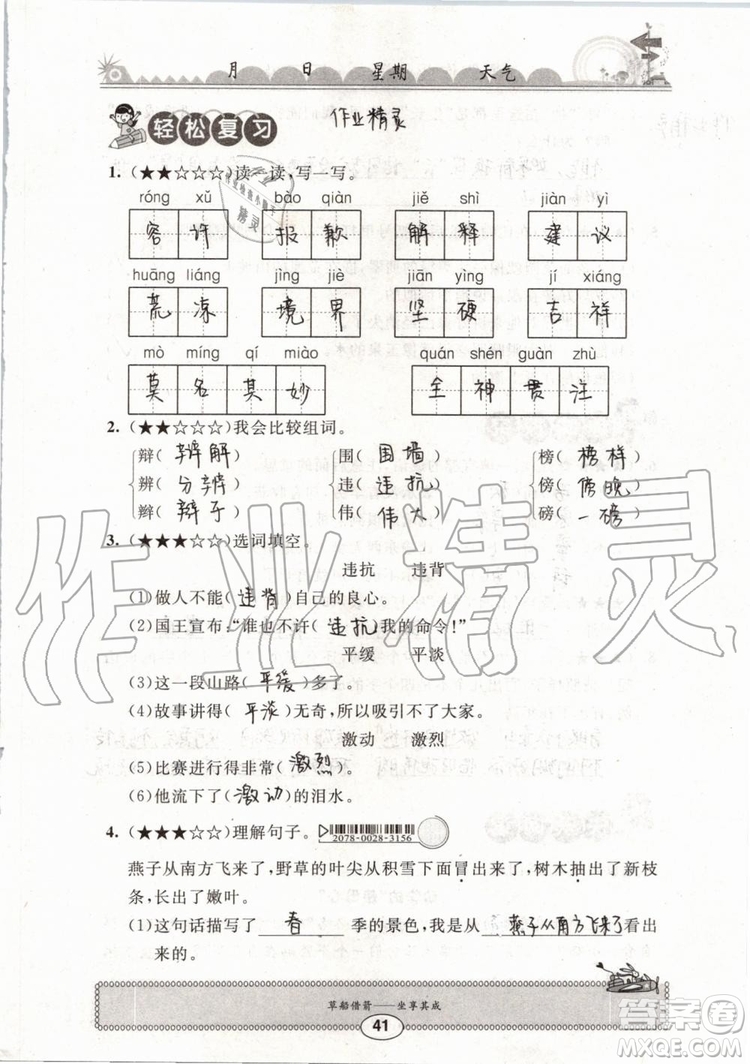 月 日 星期 天气
轻松复习 作业精灵
1.(★★☆☆☆)读一读,写一写。
róng xǔ bào qiàn jiě shì jiàn yì
容许 报歉 解释 建议
huāng liáng jìng jiè jiān yìng jí xiáng
荒凉 境界 坚硬 吉祥
mò míng qí miào quán shén guàn zhù
莫名其妙 全神贯注
2.(★★☆☆☆)我会比较组词。
辩(辩解) 围(围墙) 榜(榜样)
辨(分辨) 违(违抗) 傍(傍晚)
辫(辫子) 伟(伟大) 磅(一磅)
3.(★★★☆☆)选词填空。
违抗 违背
(1)做人不能(违背)自己的良心。
(2)国王宣布:“谁也不许(违抗)我的命令!”
平缓 平淡
(3)这一段山路(平缓)多了。
(4)故事讲得(平淡)无奇,所以吸引不了大家。
激动 激烈
(5)比赛进行得非常(激烈)。
(6)他流下了(激动)的泪水。
4.(★★★☆☆)理解句子。 2078-0028-3156
燕子从南方飞来了,野草的叶尖从积雪下面冒出来了,树木抽出了新枝
条,长出了嫩叶。
(1)这句话描写了 春 季的景色,我是从 燕子从南方飞来了 看出
来的。
草船借箭——坐享其成
41
作业精灵
答案圈
MXQE.COM